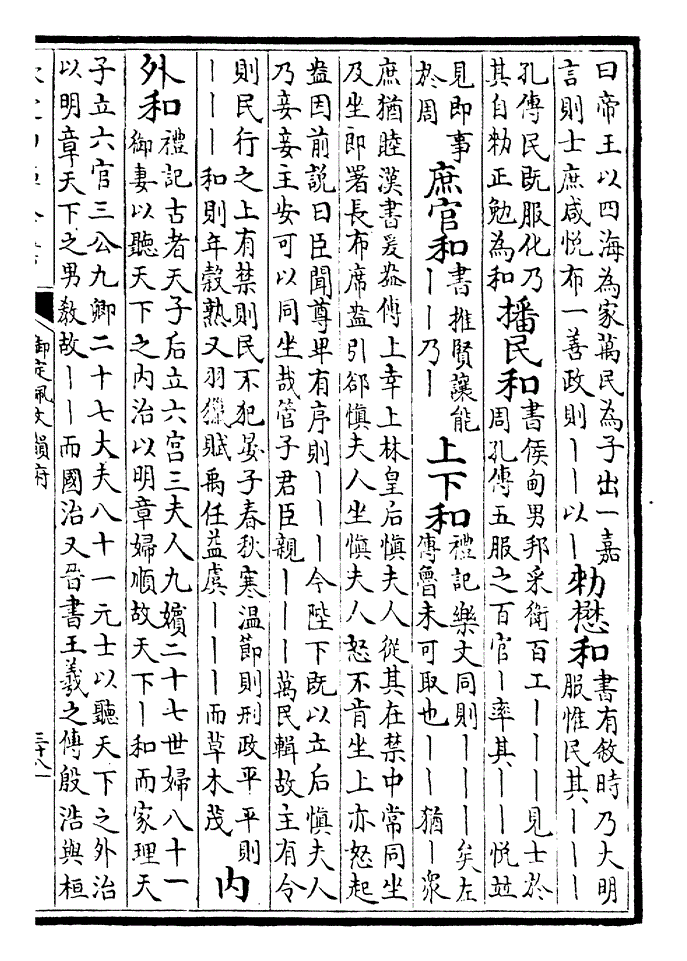 曰帝王以四海為家萬民為子出一嘉
言則士庶咸悅布一善政則丨丨以丨
勑懋和
書有敘時乃大明
服惟民其丨丨丨
孔傳民既服化乃
其自勑正勉為和
播民和
書侯甸男邦采衛百工丨丨丨見士於
周孔傳五服之百官丨率其丨丨悅竝
見即事
於周
庶官和
書推賢讓能
丨丨乃丨
上下和
禮記樂文同則丨丨丨矣左
傳魯未可取也丨丨猶丨衆
庶猶睦漢書爰盎傳上幸上林皇后慎夫人從其在禁中常同坐
及坐郎署長布席盎引卻慎夫人坐慎夫人怒不肯坐上亦怒起
盎因前說曰臣聞尊卑有序則丨丨丨今陛下既以立后慎夫人
乃妾妾主安可以同坐哉管子君臣親丨丨丨萬民輯故主有令
則民行之上有禁則民不犯晏子春秋寒温節則刑政平平則
丨丨丨和則年穀熟又羽獵賦禹任益虞丨丨丨而草木茂
内
外和
禮記古者天子后立六宮三夫人九嬪二十七世婦八十一
御妻以聽天下之内治以明章婦順故天下丨和而家理天
子立六官三公九卿二十七大夫八十一元士以聽天下之外治
以明章天下之男教故丨丨而國治又晉書王羲之傳殷浩與桓
御定佩文韻府
三十八